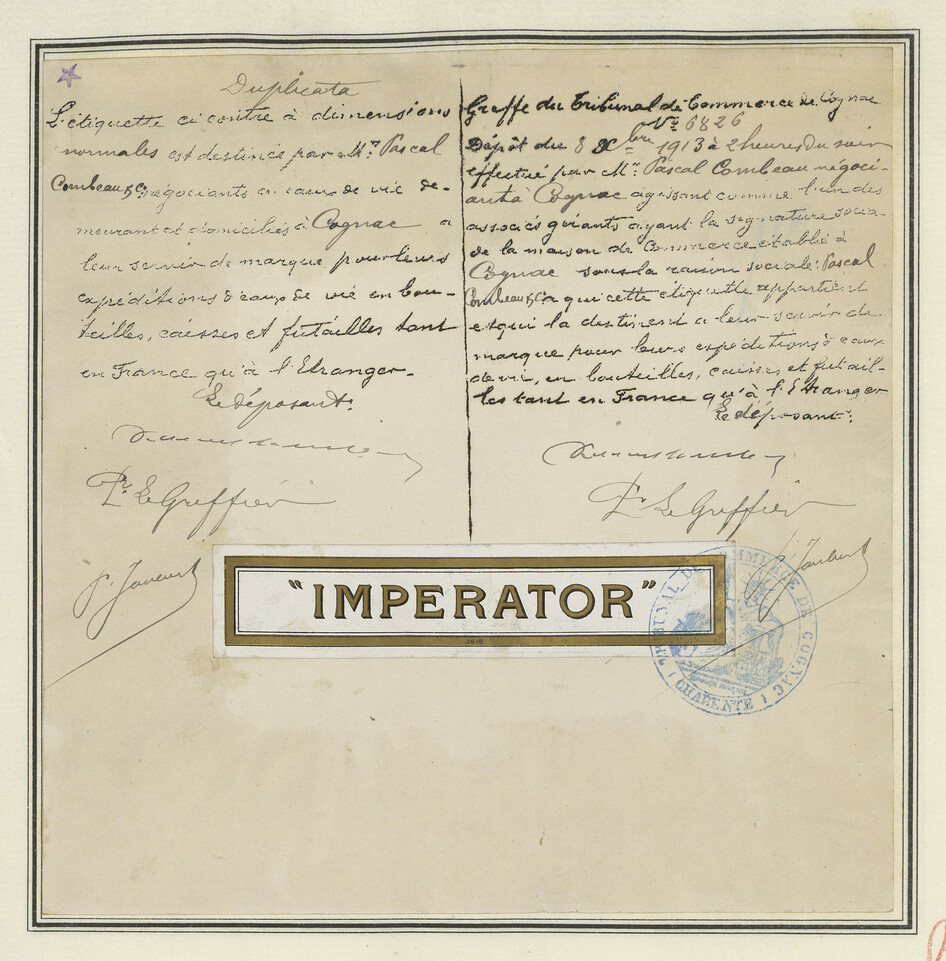 Duplicata
L'étiquette ci contre à dimensions
normales est destinée par Mrs Pascal
Combeau & Cie négociants en eaux de vie de-
meurant et domiciliés à Cognac a
leur servir de marque pour leurs
expéditions d'eaux de vie en bou-
teilles, caisses et futailles tant
en France qu'à l'Etranger-
Le déposant.
Pr Le Greffier
Greffe du Tribunal de Commerce de Cognac
No 6826
Dépôt du 8 Xbre 1913 à 2 heures du soir
effectué par Mr Pascal Combeau négoci-
ant à Cognac agissant comme l'un des
associés gérants ayant la signature socia-
de la maison de Commerce établie à
Cognac sous la raison sociale: Pascal
Combeau & Cie a qui cette étiquette appartient
et qui la destinent a leur servir de
marque pour leurs expéditions d'eaux
de vie, en bouteilles, caisses et futail-
les tant en France qu'à l'Etranger
Le déposant.
Pr Le Greffier
"IMPERATOR"
TRIBUNAL DE COMMERCE DE COGNAC
(CHARENTE)